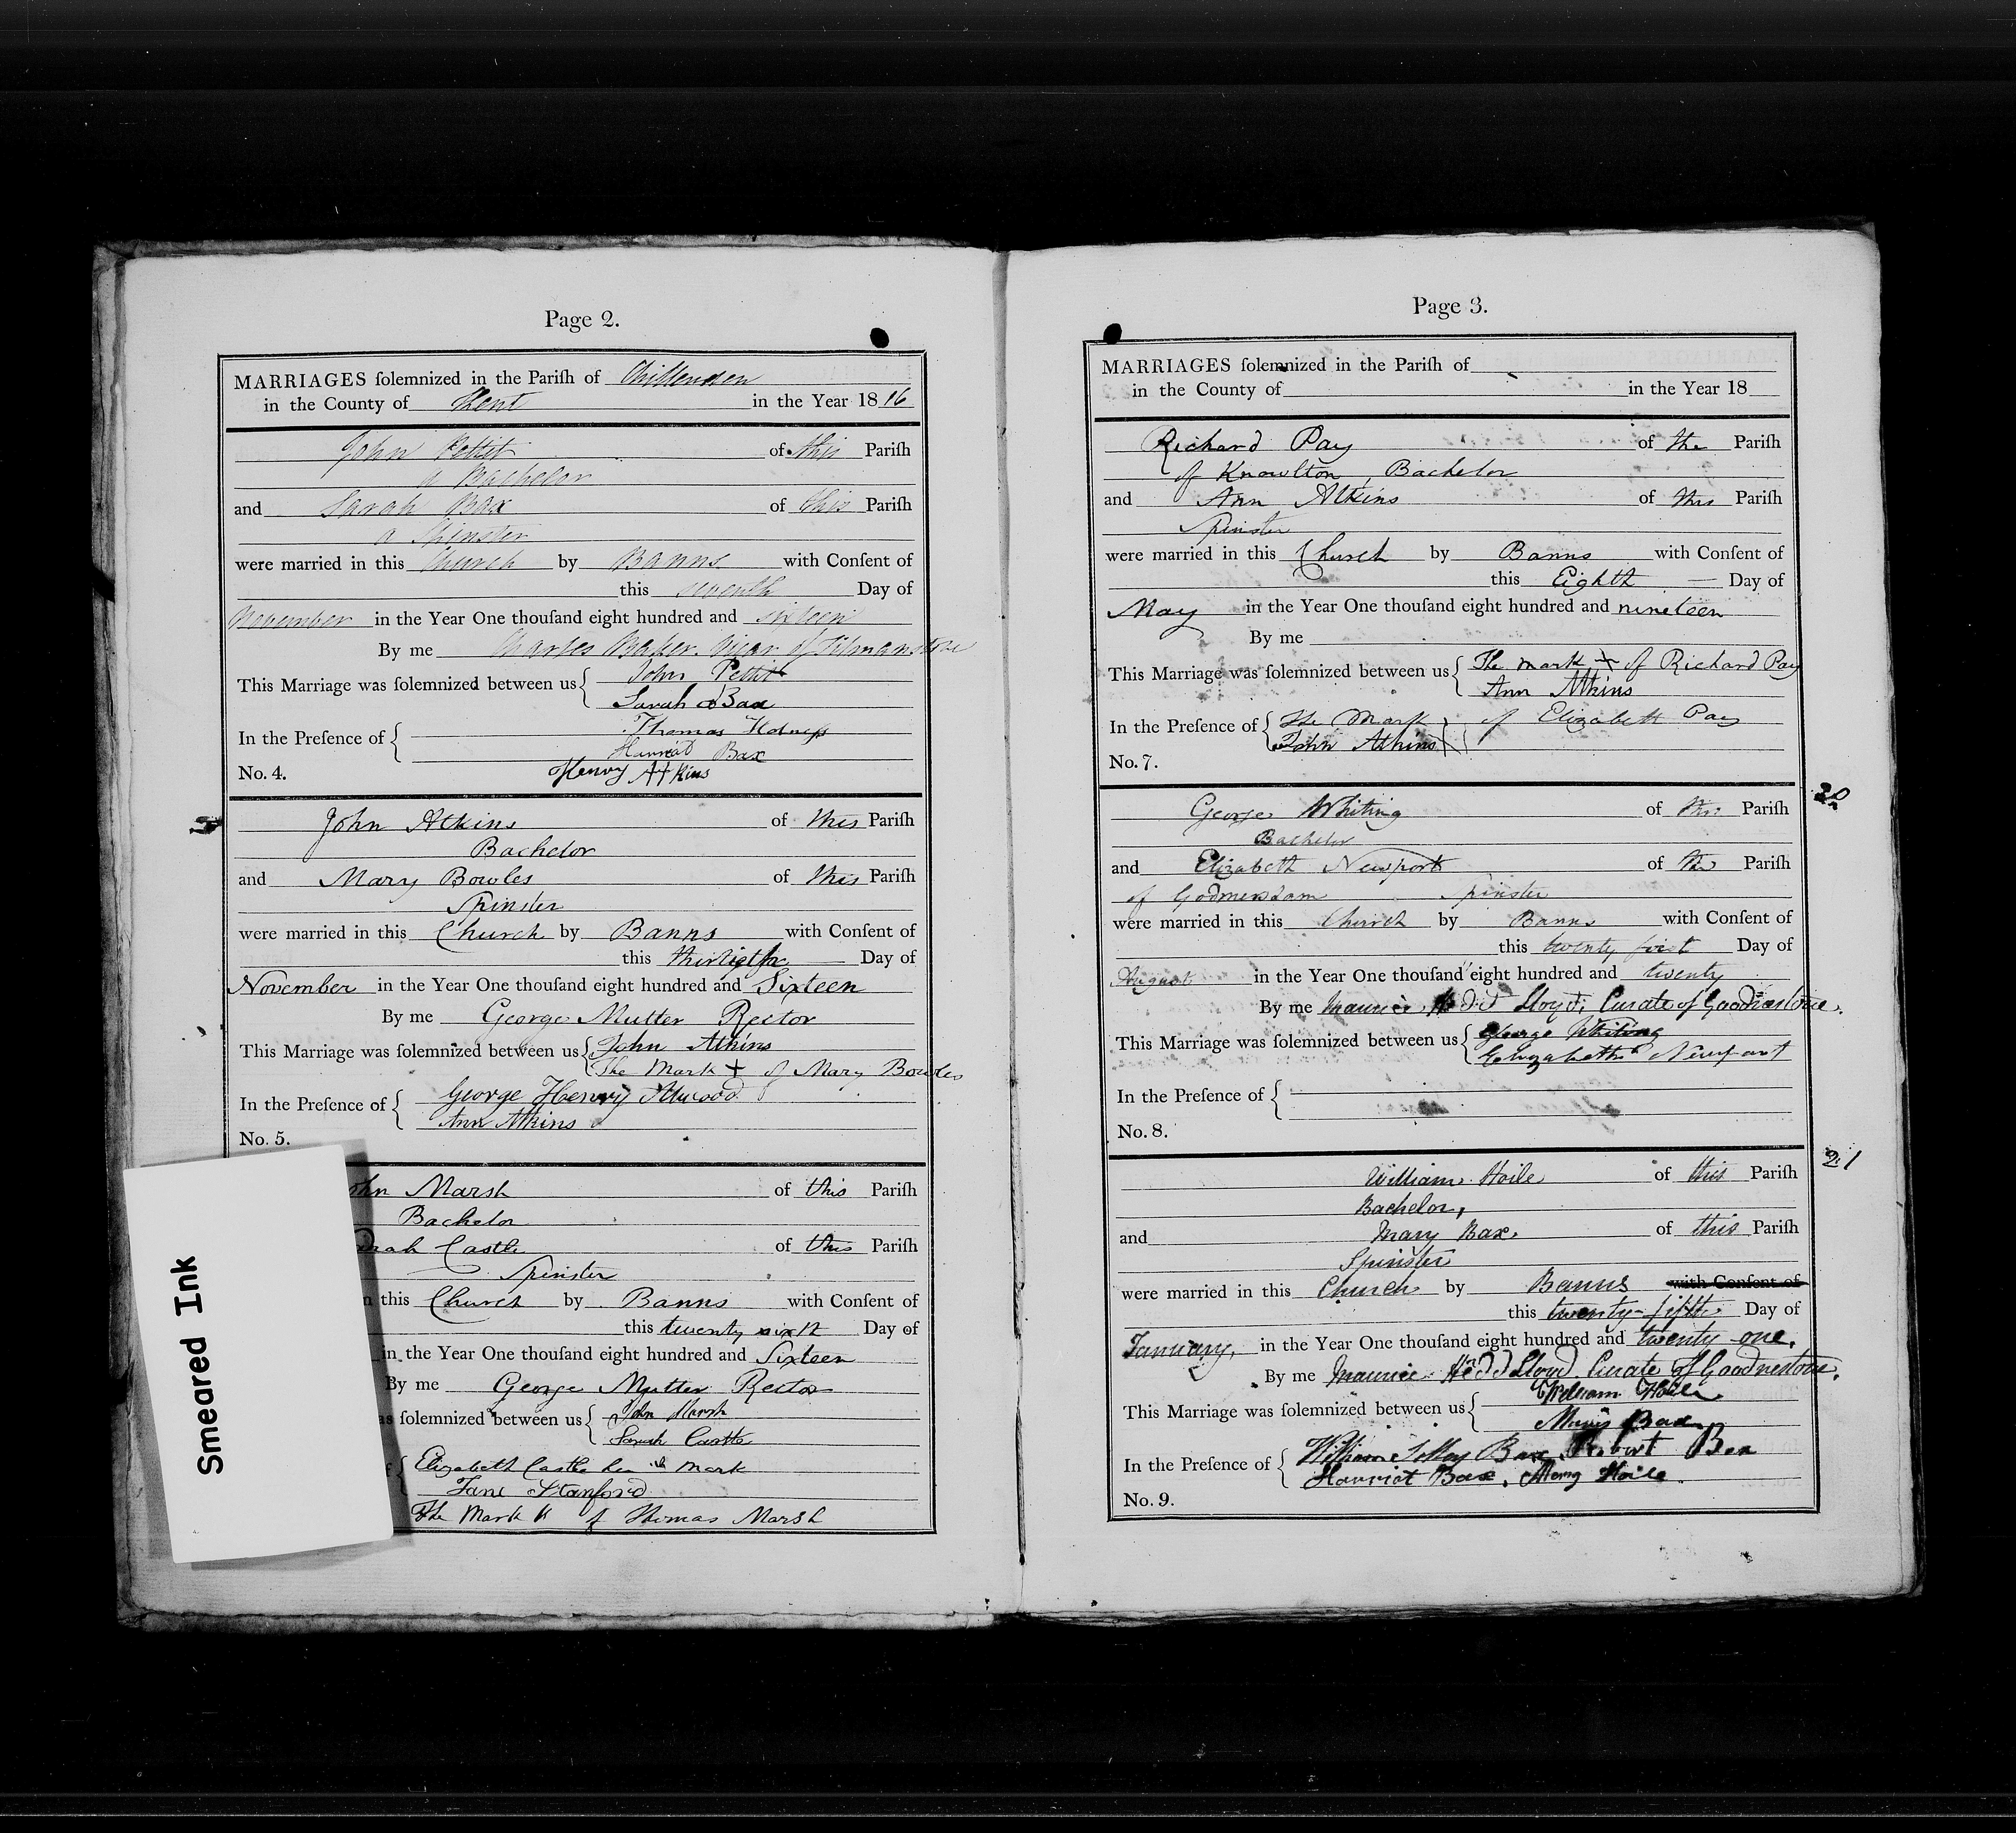 Page 2.
MARRIAGES ſolemnized in the Pariſh of Chillenden
in the County of Kent in the Year 18 16
John Pettit of this Pariſh
a Bachelor
and Sarah Bax of this Pariſh
a Spinster
were married in this Church by Banns with Conſent of
this seventh Day of
November in the Year One thouſand eight hundred and sixteen
By me Charles Baker. Vicar of Tilmanstone
This Marriage was ſolemnized between us { John Pettit
Sarah Bax
In the Preſence of { Thomas
Harriat Bax
No. 4. Henry Atkins
John Atkins of this Pariſh
Bachelor
and Mary Bowles of this Pariſh
Spinster
were married in this Church by Banns with Conſent of
this Day of
November in the Year One thouſand eight hundred and Sixteen
By me George Mutter Rector
This Marriage was ſolemnized between us { John Atkins
The Mark + of Mary Bowles
In the Preſence of { George Henry
Ann Atkins
No. 5.
John Marsh of this Pariſh
Bachelor
Castle of this Pariſh
Spinster
this Church by Banns with Conſent of
this twenty sixth Day of
in the Year One thouſand eight hundred and Sixteen
By me George Mutter Rector
ſolemnized between us { John Marsh
Sarah Castle
Elizabeth Castle her mark
Jane Stanford
The Mark of Thomas Marsh
Smeared Ink
Page 3.
MARRIAGES ſolemnized in the Pariſh of
in the County of in the Year 18
Richard Pay of the Pariſh
of Knowlton, Bachelor
and Ann Atkins of this Pariſh
Spinster
were married in this Church by Banns with Conſent of
this Eighth Day of
May in the Year One thouſand eight hundred and nineteen
By me
This Marriage was ſolemnized between us { The mark + of Richard Pay
Ann Atkins
In the Preſence of { The Mark of Elizabeth Pay
John Atkins
No. 7.
20
George Whiting of this Pariſh
Bachelor
and Elizabeth Newport of the Pariſh
of Godmersham Spinster
were married in this Church by Banns with Conſent of
this twenty first Day of
August in the Year One thouſand eight hundred and twenty
By me Maurice Lloyd, Curate of Goodnestone.
This Marriage was ſolemnized between us { George Whiting
Elizabeth Newport
In the Preſence of {
No. 8.
21
William Hoile of this Pariſh
Bachelor,
and Mary Bax. of this Pariſh
Spinster
were married in this Church by Banns with Conſent of
this twenty-fifth Day of
January, in the Year One thouſand eight hundred and twenty one.
By me Maurice Lloyd. Curate of Goodnestone.
This Marriage was ſolemnized between us { William Hoile
Mary Bax
In the Preſence of { William Bax Robert Bax
Harriot Bax. Mary Hoile
No. 9.